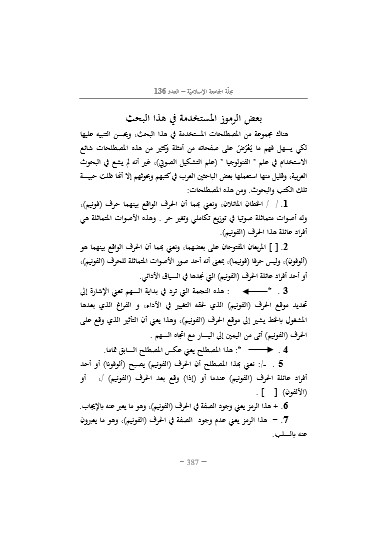 مجلّة الجامعة الإسلاميّة – العدد 136
بعض الرموز المستخدمة في هذا البحث
هناك مجموعة من المصطلحات المستخدمة في هذا البحث، ويحسن التنبيه عليها
لكي يسهل فهم ما يُعْرَضُ على صفحاته من أمثلة وكثير من هذه المصطلحات شائع
الاستخدام في علم " الفنولوجيا " (علم التشكيل الصوتي)، غير أنه لم يشع في البحوث
العربية، وقليل منها استعملها بعض الباحثين العرب في كتبهم وبحوثهم إلا أنها ظلت حبيسة
تلك الكتب والبحوث. ومن هذه المصطلحات:
1. / / الخطان المائلان، ونعني بهما أن الحرف الواقع بينهما حرف (فونيم)،
وله أصوات متماثلة صوتيا في توزيع تكاملي وتغير حر . وهذه الأصوات المتماثلة هي
أفراد عائلة هذا الحرف (الفونيم).
2. [ ] المربعان المفتوحان على بعضهما، ونعني بهما أن الحرف الواقع بينهما هو
(ألوفون)، وليس حرفا (فونيما)، بمعنى أنه أحد صور الأصوات المتماثلة للحرف (الفونيم)،
أو أحد أفراد عائلة الحرف (الفونيم) التي نجدها في السياق الأدائي.
3 . *← : هذه النجمة التي ترد في بداية السهم تعني الإشارة إلى
تحديد موقع الحرف (الفونيم) الذي لحقه التغيير في الأداء، و الفراغ الذي بعدها
المشغول بالخط يشير إلى موقع الحرف (الفونيم)، وهذا يعني أن التأثير الذي وقع على
الحرف (الفونيم) أتى من اليمين إلى اليسار مع اتجاه السهم .
4 . → *: هذا المصطلح يعني عكس المصطلح السابق تماما.
5 . -/: نعني بهذا المصطلح أن الحرف (الفونيم) يصبح (ألوفونا) أو أحد
أفراد عائلة الحرف (الفونيم) عندما أو (إذا) وقع بعد الحرف (الفونيم) /، أو
(الألفون) [ ] .
6. + هذا الرمز يعني وجود الصفة في الحرف (الفونيم)، وهو ما يعبر عنه بالإيجاب.
7. – هذا الرمز يعني عدم وجود الصفة في الحرف (الفونيم)، وهو ما يعبرون
عنه بالسلب.
– 387 –